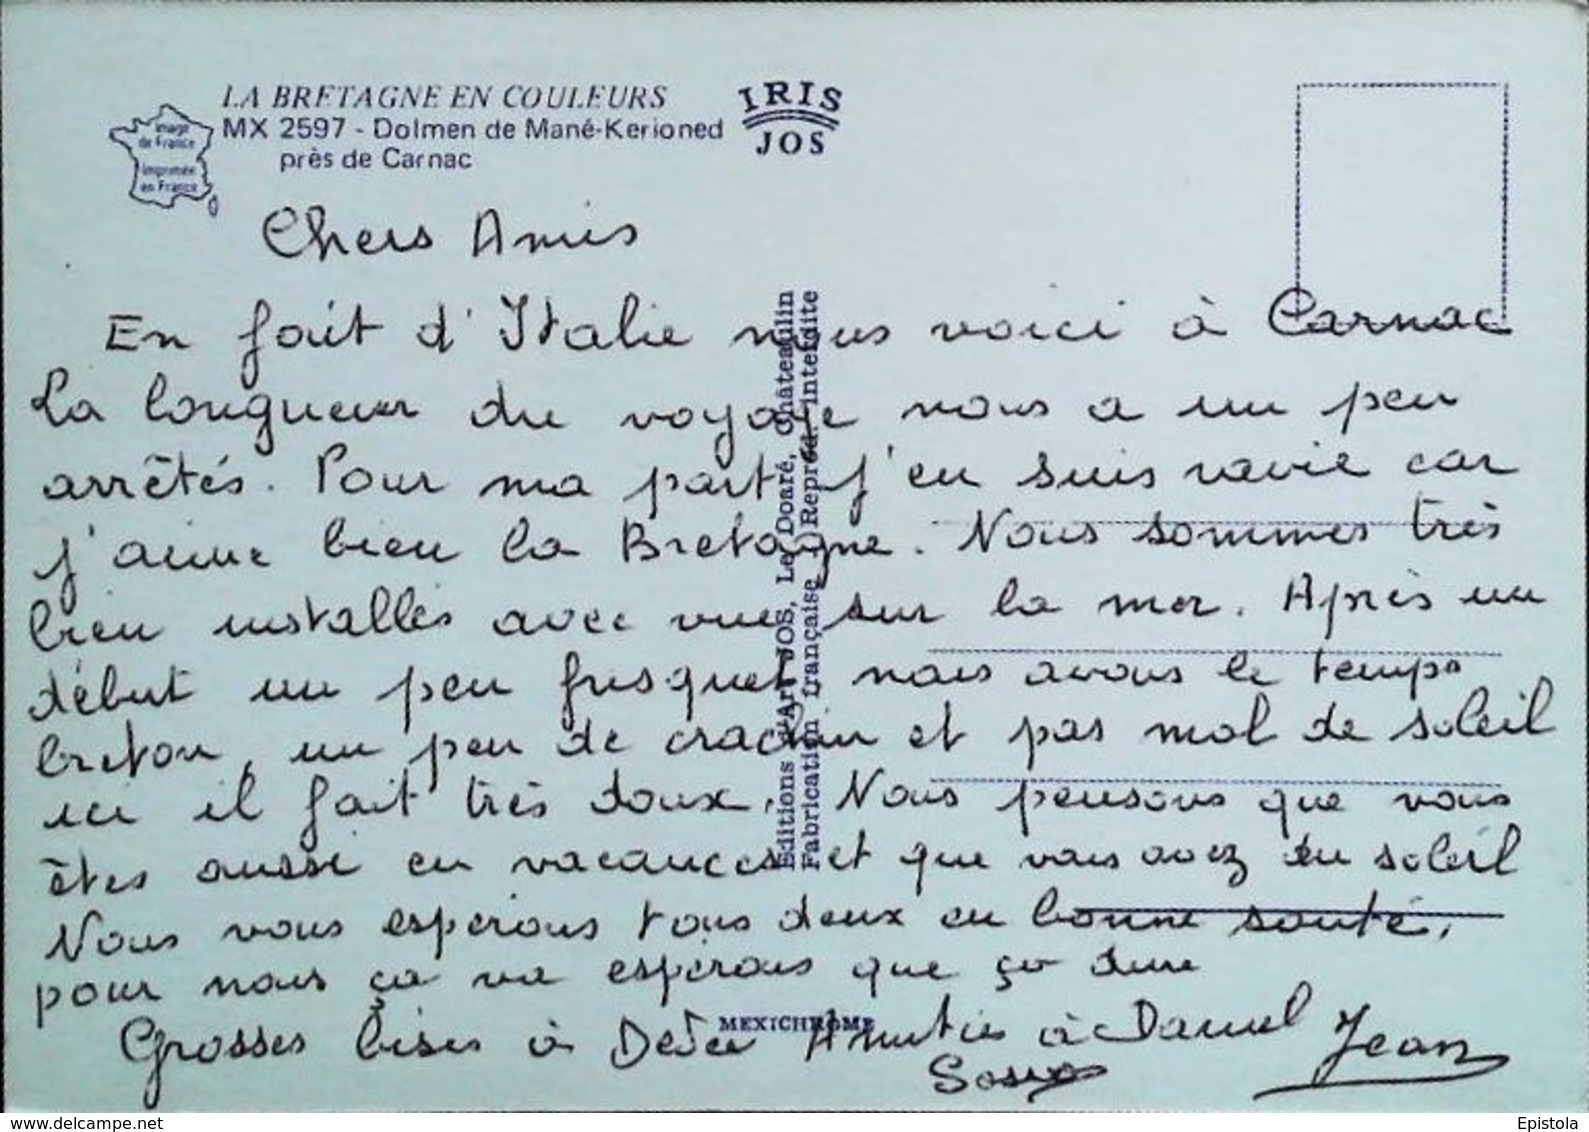 LA BRETAGNE EN COULEURS
MX 2597 - Dolmen de Mané-Kerioned
près de Carnac
Image
de France
Imprimée
en France
IRIS
JOS
Chers Amis
En fait d'Italie nous voici à Carnac
La longueur du voyage nous a un peu
arrêtés. Pour ma part j'en suis ravie car
j'aime bien la Bretagne. Nous sommes très
bien installés avec vue sur la mer. Après un
début un peu frisquet nous avons le temps
breton, un peu de crachin et pas mal de soleil
ici il fait très doux. Nous pensons que vous
êtes aussi en vacances et que vous avez du soleil
Nous vous espérons tous deux en bonne santé,
pour nous ça va espérons que ça dure
Grosses bises à Dédée Amitiés à Daniel
Jean
Editions d'Art JOS, Le Doaré, Châteaulin
Fabrication française - Reprod. interdite
MEXICHROME
delcampe.net
Epistola